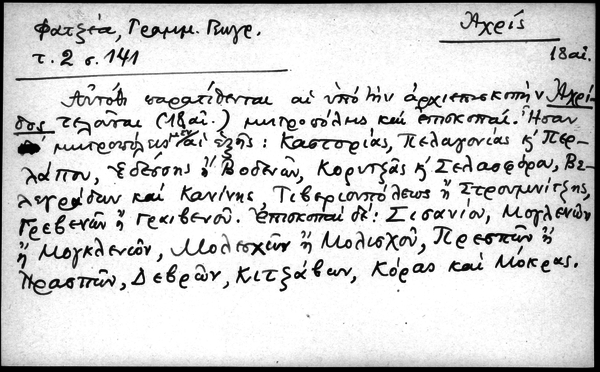 Φατζέα, Γραμμ. Γεωγρ.
τ. 2 σ. 141
Ἀχρίς
18 αἰ.
Αὐτόθι παρατίθενται αἱ ὑπὸ τὴν ἀρχιεπισκοπὴν Ἀχρί-
δος τελοῦσαι (18 αἰ.) μητροπόλεις καὶ ἐπισκοπαί. Ἦσαν
μητροπόλεις μὲν αἱ ἑξῆς: Καστορίας, Πελαγονίας κ' Περ-
λάπου, Ἐδέσσης ἢ Βοδενῶν, Κορυτζᾶς κ' Σελασφόρου, Βε-
λεγράδων καὶ Κανίνης, Τιβεριουπόλεως ἢ Στρουμνίτζης,
Γρεβενῶν ἢ Γραιβενοῦ. Ἐπισκοπαὶ δέ: Σισανίου, Μογλενῶν
ἢ Μογκλενῶν, Μολεσχῶν ἢ Μολισχοῦ, Πρεσπῶν ἢ
Πρασπῶν, Δεβρῶν, Κιτζάβων, Κόρας καὶ Μόκρας.